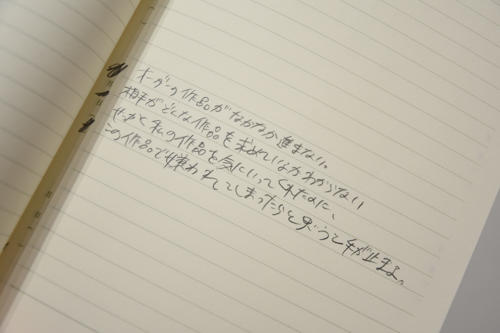 オーダーの作品がなかなか進まない。
相手がどんな作品を求めているかわからない
せっかく私の作品を気にいってくれたのに、
この作品で嫌われてしまったらと思うと手が止まる。